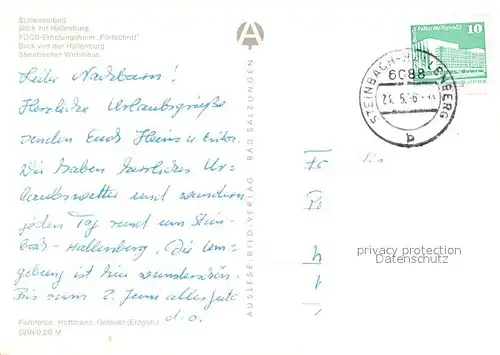 Schwimmbad
Blick zur Hallenburg
FDGB-Erholungsheim „Fortschritt“
Blick von der Hallenburg
Steinbacher Wirtshaus
Liebe Nachbarn!
Herzliche Urlaubsgrüße
senden Euch Heinz u. Erika.
Wir haben herrliches Ur-
laubswetter und wandern
jeden Tag rund um Stein-
bach-Hallenberg. Die Um-
gebung ist hier wunderschön.
Bis zum 2. Juni alles gute
d. o.
Farbfotos: Hoffmann, (Erzgeb.)
DDR 0,20 M
AUSLESE-BILD-VERLAG BAD SALZUNGEN
STEINBACH-HALLENBERG
6088
b
10
privacy protection
Datenschutz